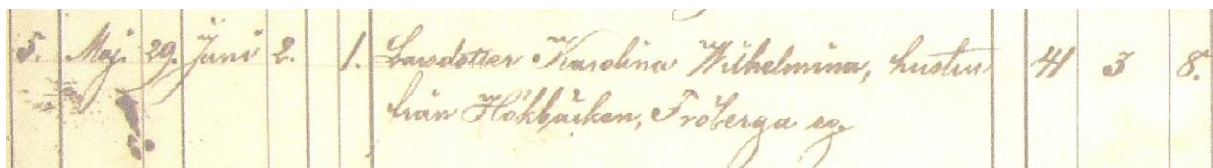 5. Maj. 29. Juni 2. 1. Larsdotter Karolina Wilhelmina, hustru 41 3 8.
från Hökbäcken, Fröberga eg.